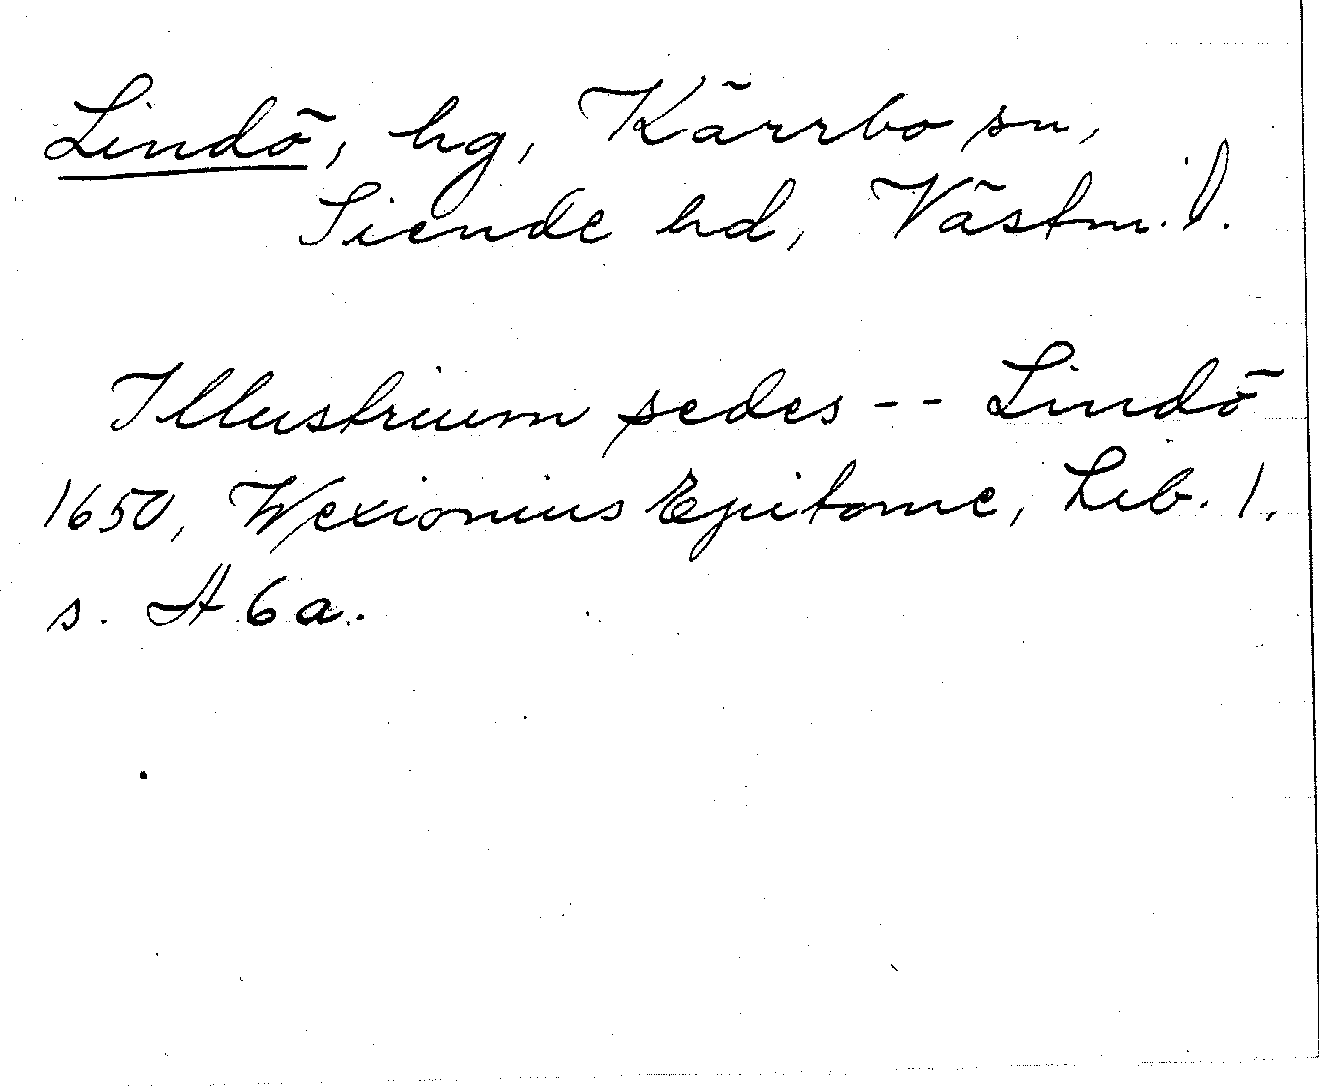 Lindö, hg, Kärrbo sn,
Siende hd, Västm. l.
Illustrium sedes -- Lindö
1650, Wexionius Epitome, Lib. 1.
s. A 6 a.